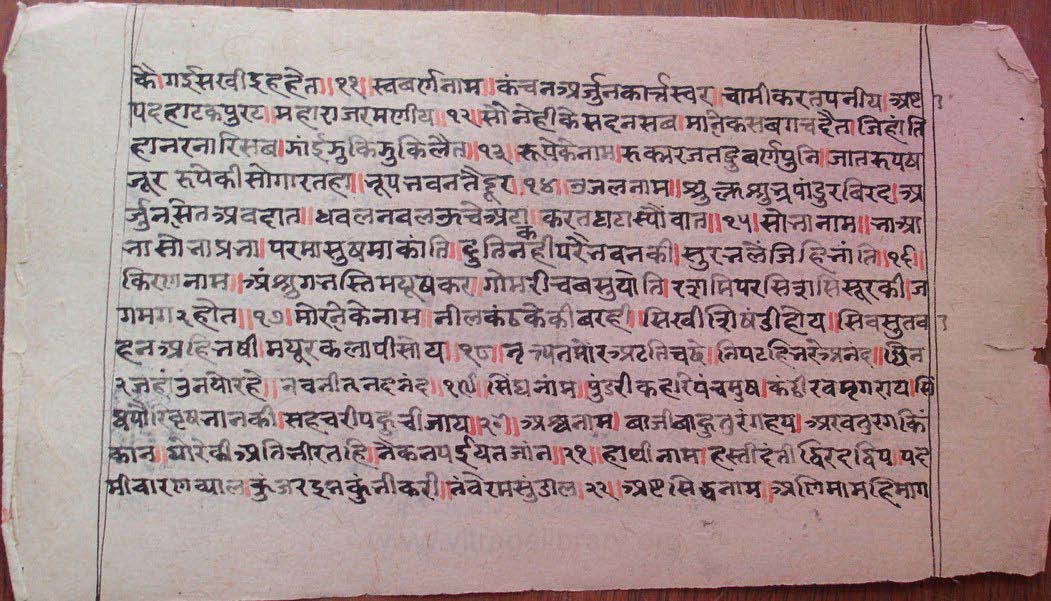 कै गई सखी इह हैत ॥११॥ स्वबर्णनाम ॥ कंचन अर्जुन कार्त्तस्वर चामीकर तपनीय अष्ट
पद हाटक पुरट महारजत रमणीय ॥१२॥ सोनेही के सदन सब मानिक सब गच दैत जिहां ति
हा नर नारि सब झांई झुकि झुकि लैत ॥१३॥ रूपेके नाम रुक्म रजत दुबर्ण पुनि जात रूप ष
जूर रूपेकी सो गार तहां भूप भवन तै दूर ॥१४॥ उजल नाम ॥ शुक्ल शुभ्र पांडुर बिसद अ
र्जुन सित अवदात ॥ धवल नवल ऊचे अटा करत घटा स्यौ बात ॥१५॥ सोभा नाम ॥ भा आ
भा सोभा प्रभा परमा सुषमा कांति दुति नही परै भवन की सुर भूलै जिहि भांति ॥१६॥
किरण नाम ॥ अंशु गभस्ति मयूष कर गो मरीच बसु योति रश्मि परसि ससि सूर की ज
गमग र होत ॥१७॥ मोरके नाम ॥ नीलकंठ केकी बरही सिखी शिषंडी होय सिवसुत व
हन अहिभषी मयूर कलापी सोय ॥१८॥ नृत्यत मोर अटानि चढे निपट हि भरे अनंद दिन
र जहां उनयो रहै नवनीत नद नंद ॥१९॥ सिंघ नांम पुंडरीक हरि पंचमुष कंठीरव मृगराय सि
घ पौरि वृषभान की सहचरी पहुची जाय ॥२०॥ अश्व नाम बाजी बाह तुरंग हय अरव तुरग किं
कान घोरे की अति भीर तहि नैक न पईयत जांन ॥२१॥ हाथी नाम हस्ती दंती द्विरद द्विप पद
मी वारण व्याल कुंजर इभ कुंभी करी तंबेरम सुंडाल ॥२२॥ अष्टसिद्ध नाम अणिमा महिमा ग